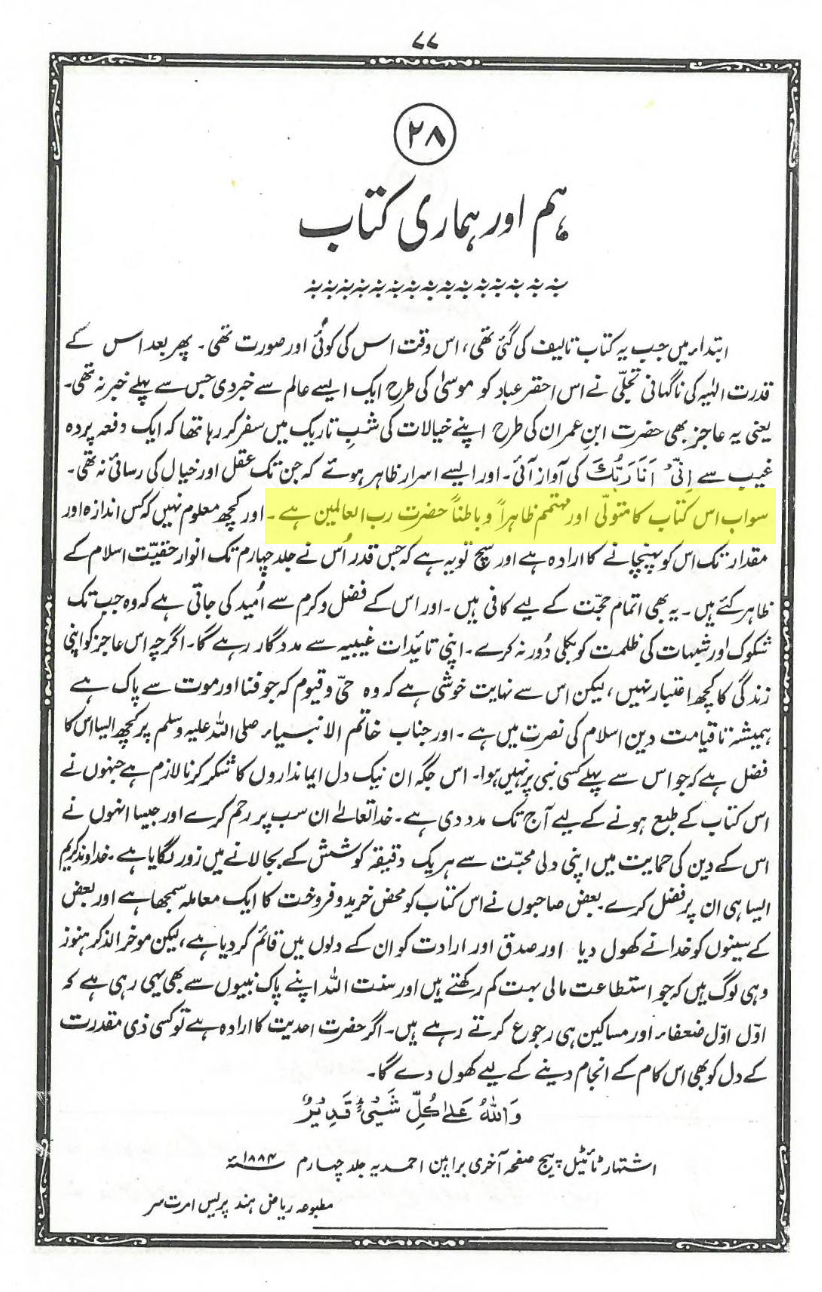 ۷۷
۲۸
ہم اور ہماری کتاب
ابتداء میں جب یہ کتاب تالیف کی گئی تھی، اس وقت اس کی کوئی اور صورت تھی۔ پھر بعد اس کے
قدرت الٰہیہ کی ناگہانی تجلّی نے اس احقر عباد کو موسیٰ کی طرح ایک ایسے عالم سے خبر دی جس سے پہلے خبر نہ تھی۔
یعنی یہ عاجز بھی حضرت ابنِ عمران کی طرح اپنے خیالات کی شبِ تاریک میں سفر کر رہا تھا کہ ایک دفعہ پردہ
غیب سے اِنِّیْ اَنَا رَبُّکَ کی آواز آئی۔ اور ایسے اسرار ظاہر ہوئے کہ جن تک عقل اور خیال کی رسائی نہ تھی۔
سو اب اس کتاب کا متولّی اور مہتمم ظاہراً و باطناً حضرت رب العالمین ہے۔ اور کچھ معلوم نہیں کہ کس اندازہ اور
مقدار تک اس کو پہنچانے کا ارادہ ہے اور سچ تو یہ ہے کہ جس قدر اُس نے جلد چہارم تک انوار حقیّت اسلام کے
ظاہر کئے ہیں۔ یہ بھی اتمام حجّت کے لیے کافی ہیں۔ اور اس کے فضل و کرم سے اُمید کی جاتی ہے کہ وہ جب تک
شکوک اور شبہات کی ظلمت کو بکلی دُور نہ کرے۔ اپنی تائیدات غیبیہ سے مددگار رہے گا۔ اگرچہ اس عاجز کو اپنی
زندگی کا کچھ اعتبار نہیں، لیکن اس سے نہایت خوشی ہے کہ وہ حیّ و قیوم کہ جو فنا اور موت سے پاک ہے
ہمیشہ تا قیامت دین اسلام کی نصرت میں ہے۔ اور جناب خاتم الانبیاء صلی اللہ علیہ وسلم پر کچھ ایسا اس کا
فضل ہے کہ جو اس سے پہلے کسی نبی پر نہیں ہوا۔ اس جگہ ان نیک دل ایمانداروں کا شکر کرنا لازم ہے جنہوں نے
اس کتاب کے طبع ہونے کے لیے آج تک مدد دی ہے۔ خدا تعالےٰ ان سب پر رحم کرے اور جیسا انہوں نے
اس کے دین کی حمایت میں اپنی دلی محبّت سے ہر یک دقیقہ کوشش کے بجا لانے میں زور لگایا ہے۔ خداوند کریم
ایسا ہی ان پر فضل کرے۔ بعض صاحبوں نے اس کتاب کو محض خرید و فروخت کا ایک معاملہ سمجھا ہے اور بعض
کے سینوں کو خدا نے کھول دیا اور صدق اور ارادت کو ان کے دلوں میں قائم کر دیا ہے، لیکن موخر الذکر ہنوز
وہی لوگ ہیں کہ جو استطاعت مالی بہت کم رکھتے ہیں اور سنت اللہ اپنے پاک نبیوں سے بھی یہی رہی ہے کہ
اوّل اوّل ضعفاء اور مساکین ہی رجوع کرتے رہے ہیں۔ اگر حضرت احدیت کا ارادہ ہے تو کسی ذی مقدرت
کے دل کو بھی اس کام کے انجام دینے کے لیے کھول دے گا۔
وَاللّٰهُ عَلٰی کُلِّ شَیْیٍٔ قَدِیْرٌ
اشتہار ٹائیٹل پیج صفحہ آخری براہین احمدیہ جلد چہارم ۱۸۸۴ء
مطبوعہ ریاض ہند پریس امرت سر